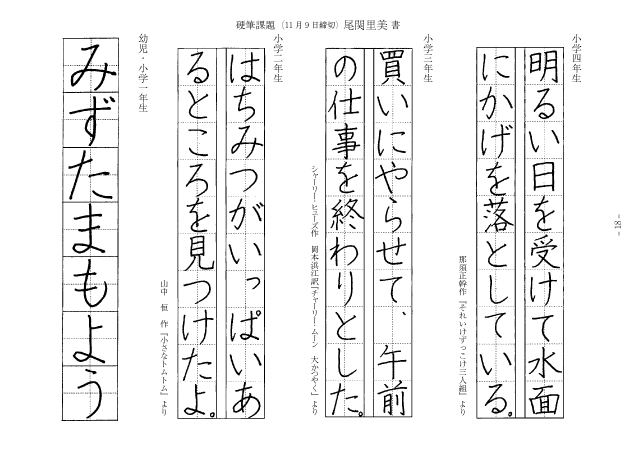 硬筆課題（11月9日締切）尾関里美 書
小学四年生
明るい日を受けて水面
にかげを落としている。
那須正幹作『それいけずっこけ三人組』より
小学三年生
買いにやらせて、午前
の仕事を終わりとした。
シャーリー・ヒューズ作 岡本浜江訳『チャーリー・ムーン 大かつやく』より
小学二年生
はちみつがいっぱいあ
るところを見つけたよ。
山中 恒 作『小さなトムトム』より
幼児・小学一年生
みずたまもよう